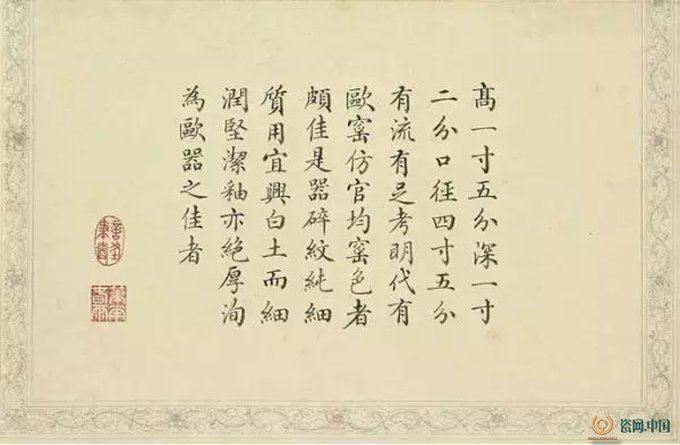 髙一寸五分深一寸
二分口徑四寸五分
有流有足考明代有
歐窯仿官均窯色者
頗佳是器碎紋純細
質用宜興白土而細
潤堅潔釉亦絶厚洵
為歐器之佳者
瓷网.中国